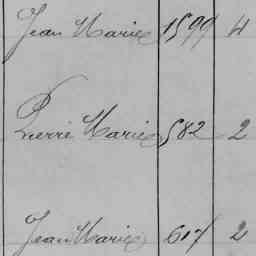 Jean Marie 1599 4
Pierre Marie 582 2
Jean Marie 607 2